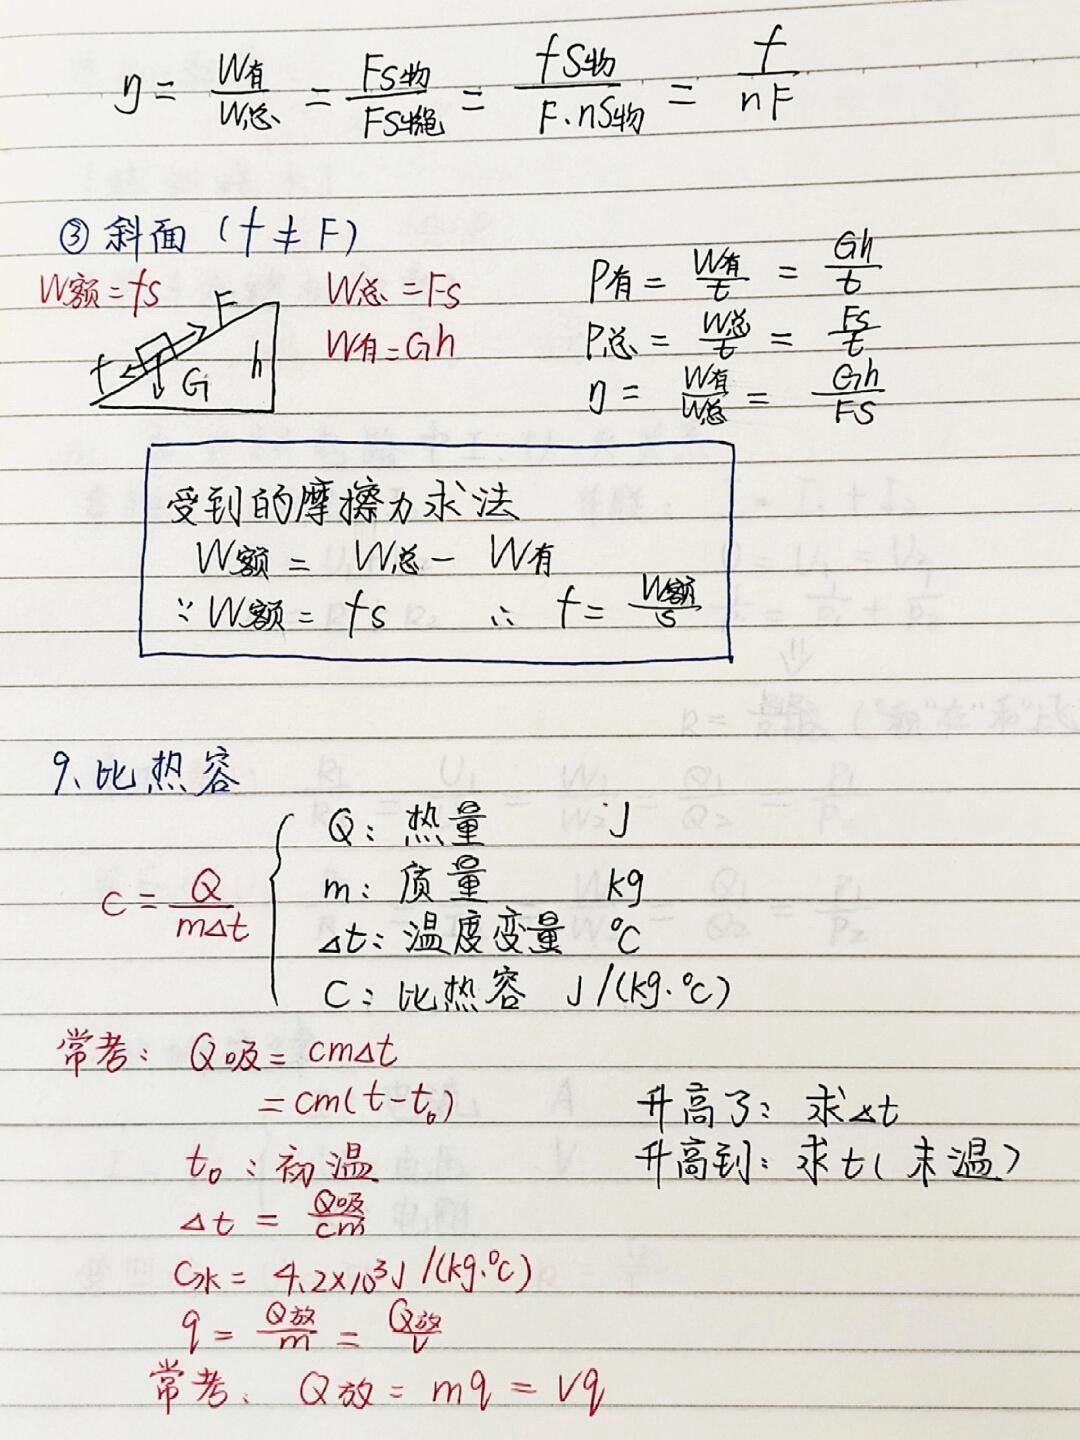 η = W有/W总 = FS物/FS绳 = fS物/F·nS物 = f/nF
③ 斜面 (f ≠ F)
W额 = fs W总 = Fs
W有 = Gh
F
f
G
h
P有 = W有/t = Gh/t
P总 = W总/t = Fs/t
η = W有/W总 = Gh/FS
受到的摩擦力求法
W额 = W总 − W有
∵ W额 = fs ∴ f = W额/s
9、比热容
C = Q/m△t
Q：热量 J
m：质量 kg
△t：温度变量 ℃
C：比热容 J/(kg·℃)
常考：Q吸 = cm△t
= cm(t-t₀)
升高了：求△t
t₀：初温
升高到：求t(末温)
△t = Q吸/cm
C水 = 4.2×10³J/(kg·℃)
q = Q放/m = Q放/V
常考：Q放 = mq = Vq